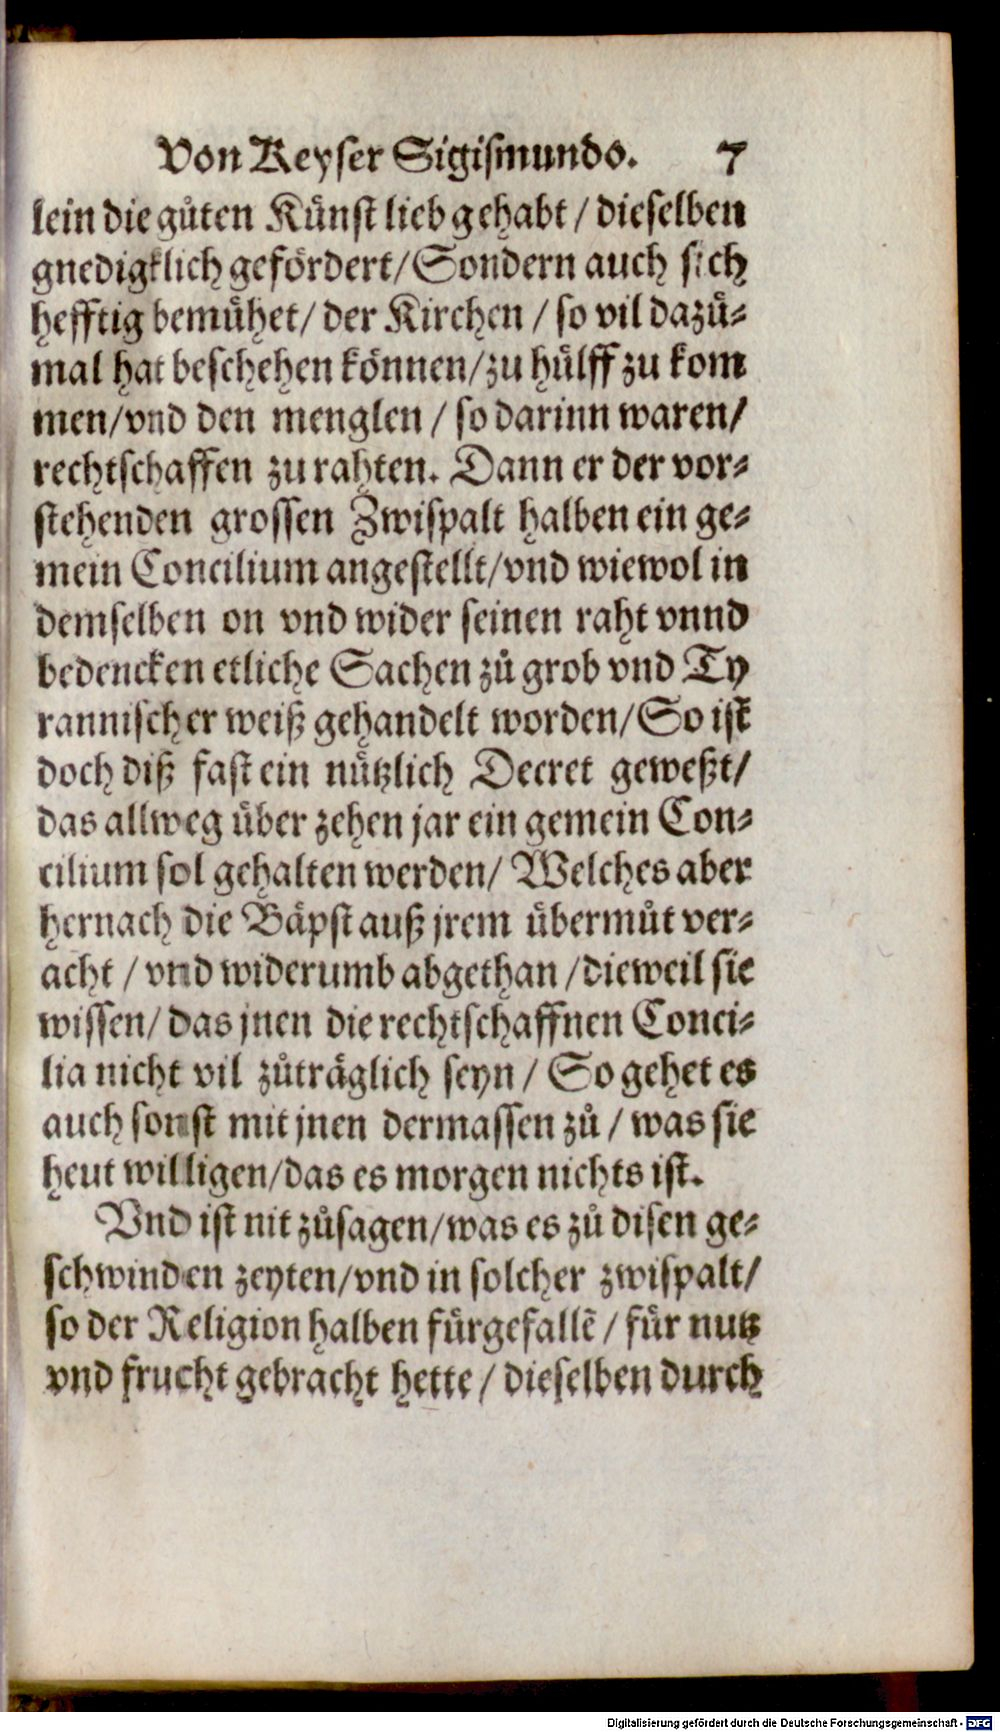 Von Keyser Sigismundo. 7
lein die gůten Künst lieb gehabt / dieselben
gnedigklich gefördert/ Sondern auch sich
hefftig bemühet/ der Kirchen / so vil dazů-
mal hat beschehen können/ zu hülff zu kom
men/ vnd den menglen / so darinn waren/
rechtschaffen zu rahten. Dann er der vor-
stehenden grossen Zwispalt halben ein ge-
mein Concilium angestellt/ vnd wiewol in
demselben on vnd wider seinen raht vnnd
bedencken etliche Sachen zů grob vnd Ty
rannischer weiß gehandelt worden/ So ist
doch diß fast ein nützlich Decret geweßt/
das allweg über zehen jar ein gemein Con-
cilium sol gehalten werden/ Welches aber
hernach die Bäpst auß jrem übermůt ver-
acht / vnd widerumb abgethan / dieweil sie
wissen/ das jnen die rechtschaffnen Conci-
lia nicht vil zůträglich seyn / So gehet es
auch sonst mit jnen dermassen zů / was sie
heut willigen/ das es morgen nichts ist.
Vnd ist nit zůsagen/ was es zů disen ge-
schwinden zeyten/ vnd in solcher zwispalt/
so der Religion halben fürgefallẽ / für nutz
vnd frucht gebracht hette / dieselben durch
Digitalisierung gefördert durch die Deutsche Forschungsgemeinschaft - DFG